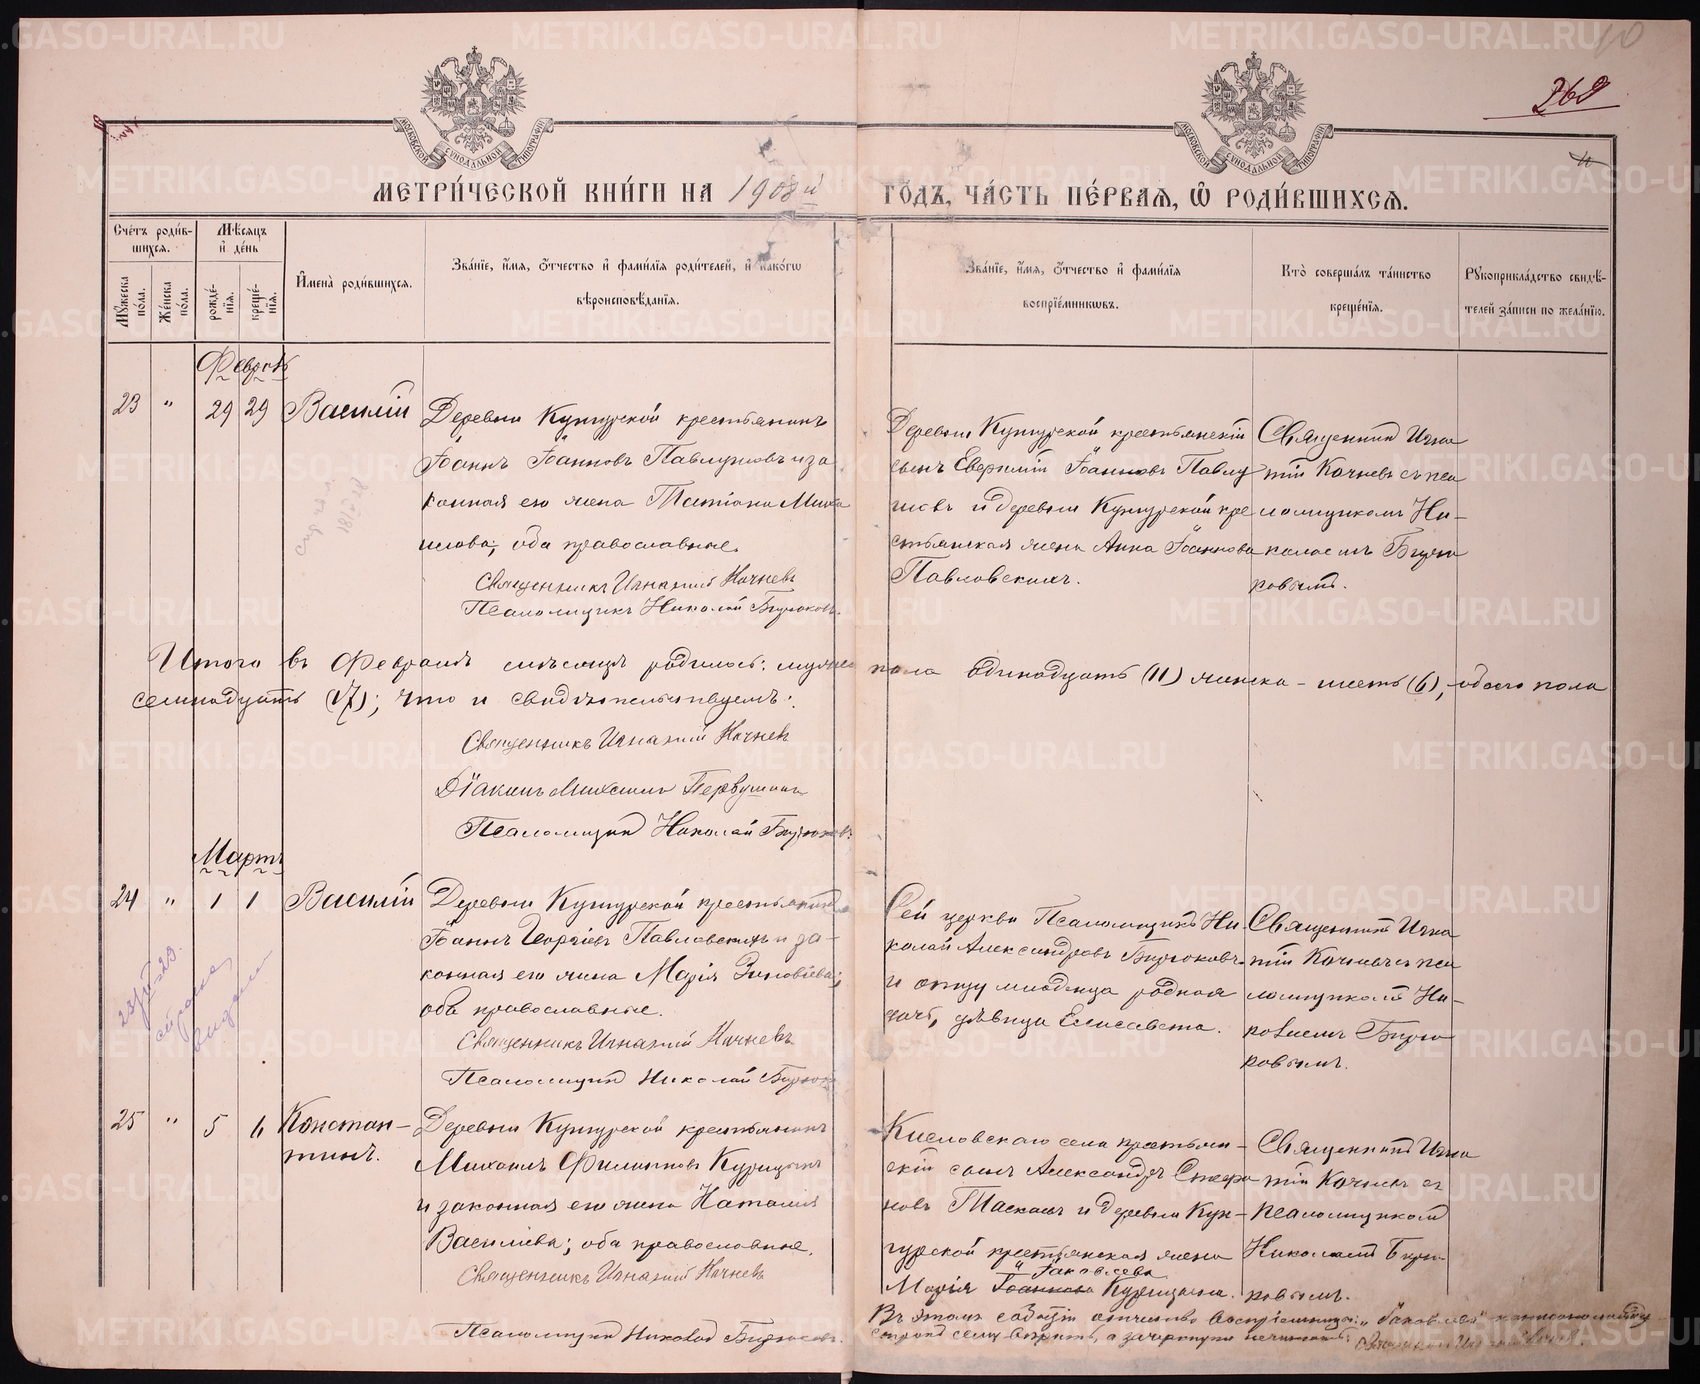 268
МЕТРИ́ЧЕСКОЙ КНИ́ГИ НА 1908й ГО́ДЪ, ЧА́СТЬ ПЕ́РВАЯ, Ѽ РОДИ́ВШИХСЯ.
Сче́тъ роди́в-
шихся.
Мѣсяцъ
и҆ де́нь
Мꙋ́жеска по́ла.
Же́нска по́ла.
рожде́-
нїя.
креще́-
нїя.
И҆мена̀ роди́вшихся.
Зва́нїе, и҆́мя, о҆́тчество и҆ фами́лїя роди́телей, и҆ како́гѡ
вѣроисповѣ́данїя.
Зва́нїе, и҆́мя, о҆́тчество и҆ фами́лїя
воспрїе́мникѡвъ.
Кто̀ соверша́лъ та́инство
креще́нїя.
Рꙋкоприкла́дство свидѣ́-
телей за́писи по жела́нїю.
Февраль
23 " 29 29 Василій
Деревни Кунгурской крестьянинъ
Іоаннъ Іоанновъ Павлушовъ и за
конная его жена Татіана Миха
илова; оба православные.
Священникъ Игнатій Кочневъ
Псаломщикъ Николай Бирюковъ.
Деревни Кунгурской крестьянскій
сынъ Евфимій Іоанновъ Павлу
шовъ и деревни Кунгурской кре
стьянская жена Анна Іоаннова
Павловскихъ.
Священникъ Игна
тій Кочневъ съ пса
ломщикомъ Ни-
колаемъ Бирю
ковымъ.
Итого въ Февралѣ мѣсяцѣ родилось: мужеска пола одинадцать (11) женска - шесть (6), обоего пола
семнадцать (17); что и свидѣтельствуемъ:
Священникъ Игнатій Кочневъ
Діаконъ Михаилъ Первушинъ
Псаломщикъ Николай Бирюковъ.
Мартъ
24 " 1 1 Василій
Деревни Кунгурской крестьянинъ
Іоаннъ Георгіевъ Павловскихъ и за-
конная его жена Марія Зиновіева;
оба православные.
Священникъ Игнатій Кочневъ
Псаломщикъ Николай Бирюковъ
Сей церкви Псаломщикъ Ни-
колай Александровъ Бирюковъ
и отцу младенца родная
дочь, дѣвица Елисавета.
Священникъ Игна
тій Кочневъ съ пса
ломщикомъ Ни-
колаемъ Бирю
ковымъ.
25 " 5 6 Констан-
тинъ.
Деревни Кунгурской крестьянинъ
Михаилъ Филипповъ Курицынъ
и законная его жена Наталія
Василіева; оба православные.
Священникъ Игнатій Кочневъ
Псаломщикъ Николай Бирюковъ.
Кисловскаго села крестьян-
скій сынъ Александръ Стефа
новъ Таскаевъ и деревни Кун-
гурской крестьянская жена
"Іаковлева
Марія Іоаннова Курицына.
Священникъ Игна
тій Кочневъ съ
псаломщикомъ
Николаемъ Бирю
ковымъ.
Въ этомъ событіи отчество воспріемницы: "Іаковлева" написанному между
строкъ сему вѣрить, а зачеркнутое не читать: